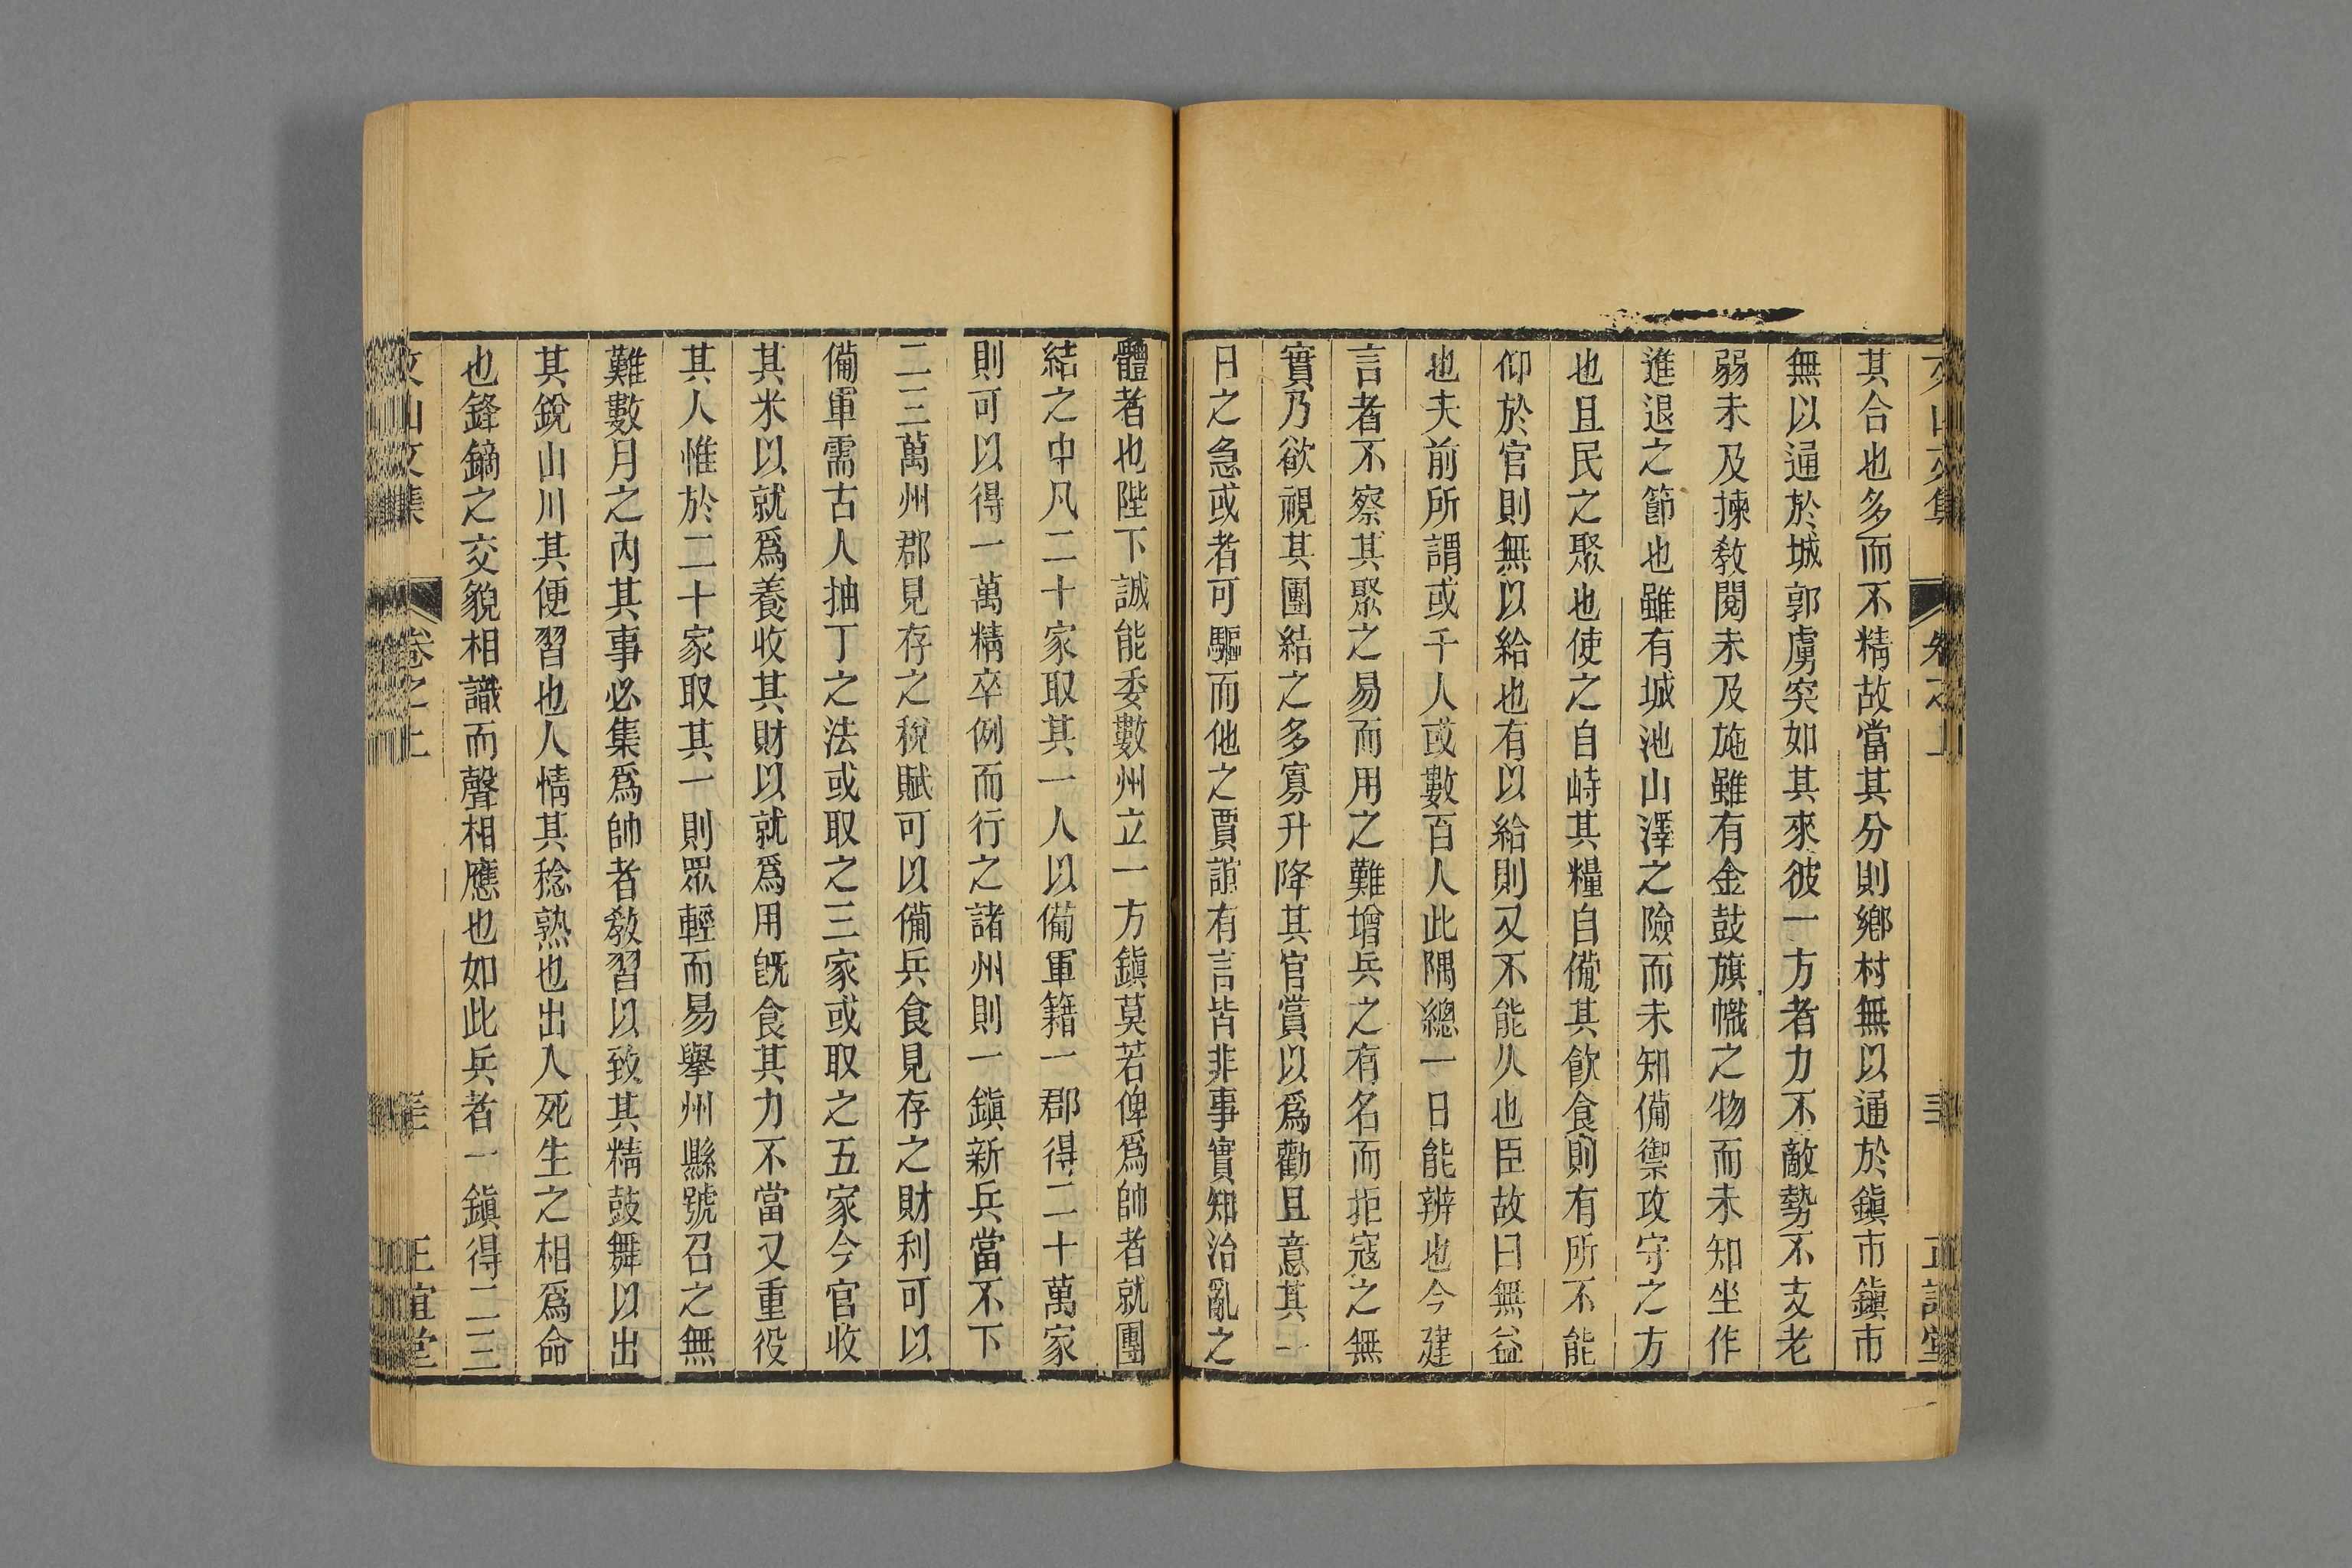 其合也多而不精故當其分則鄉村無以通於鎭市鎭市
無以通於城郭虜突如其來彼一方者力不敵勢不支老
弱未及揀敎閱未及施雖有金鼓旗幟之物而未知坐作
進退之節也雖有城池山澤之險而未知備禦攻守之方
也且民之聚也使之自峙其糧自備其飮食則有所不能
仰於官則無以給也有以給則又不能久也臣故曰無益
也夫前所謂或千人或數百人此隅總一日能辨也今建
言者不察其聚之易而用之難增兵之有名而拒寇之無
實乃欲視其團結之多寡升降其官賞以爲勸且意其一
日之急或者可驅而他之賈誼有言皆非事實知治亂之
體者也陛下誠能委數州立一方鎭莫若俾爲帥者就團
結之中凡二十家取其一人以備軍籍一郡得二十萬家
則可以得一萬精卒例而行之諸州則一鎭新兵當不下
二三萬州郡見存之稅賦可以備兵食見存之財利可以
備軍需古人抽丁之法或取之三家或取之五家今官收
其米以就爲養收其財以就爲用旣食其力不當又重役
其人惟於二十家取其一則眾輕而易擧州縣號召之無
難數月之內其事必集爲帥者敎習以致其精鼓舞以出
其銳山川其便習也人情其稔熟也出入死生之相爲命
也鋒鏑之交貌相識而聲相應也如此兵者一鎭得二三
文山文集 卷之上 正誼堂